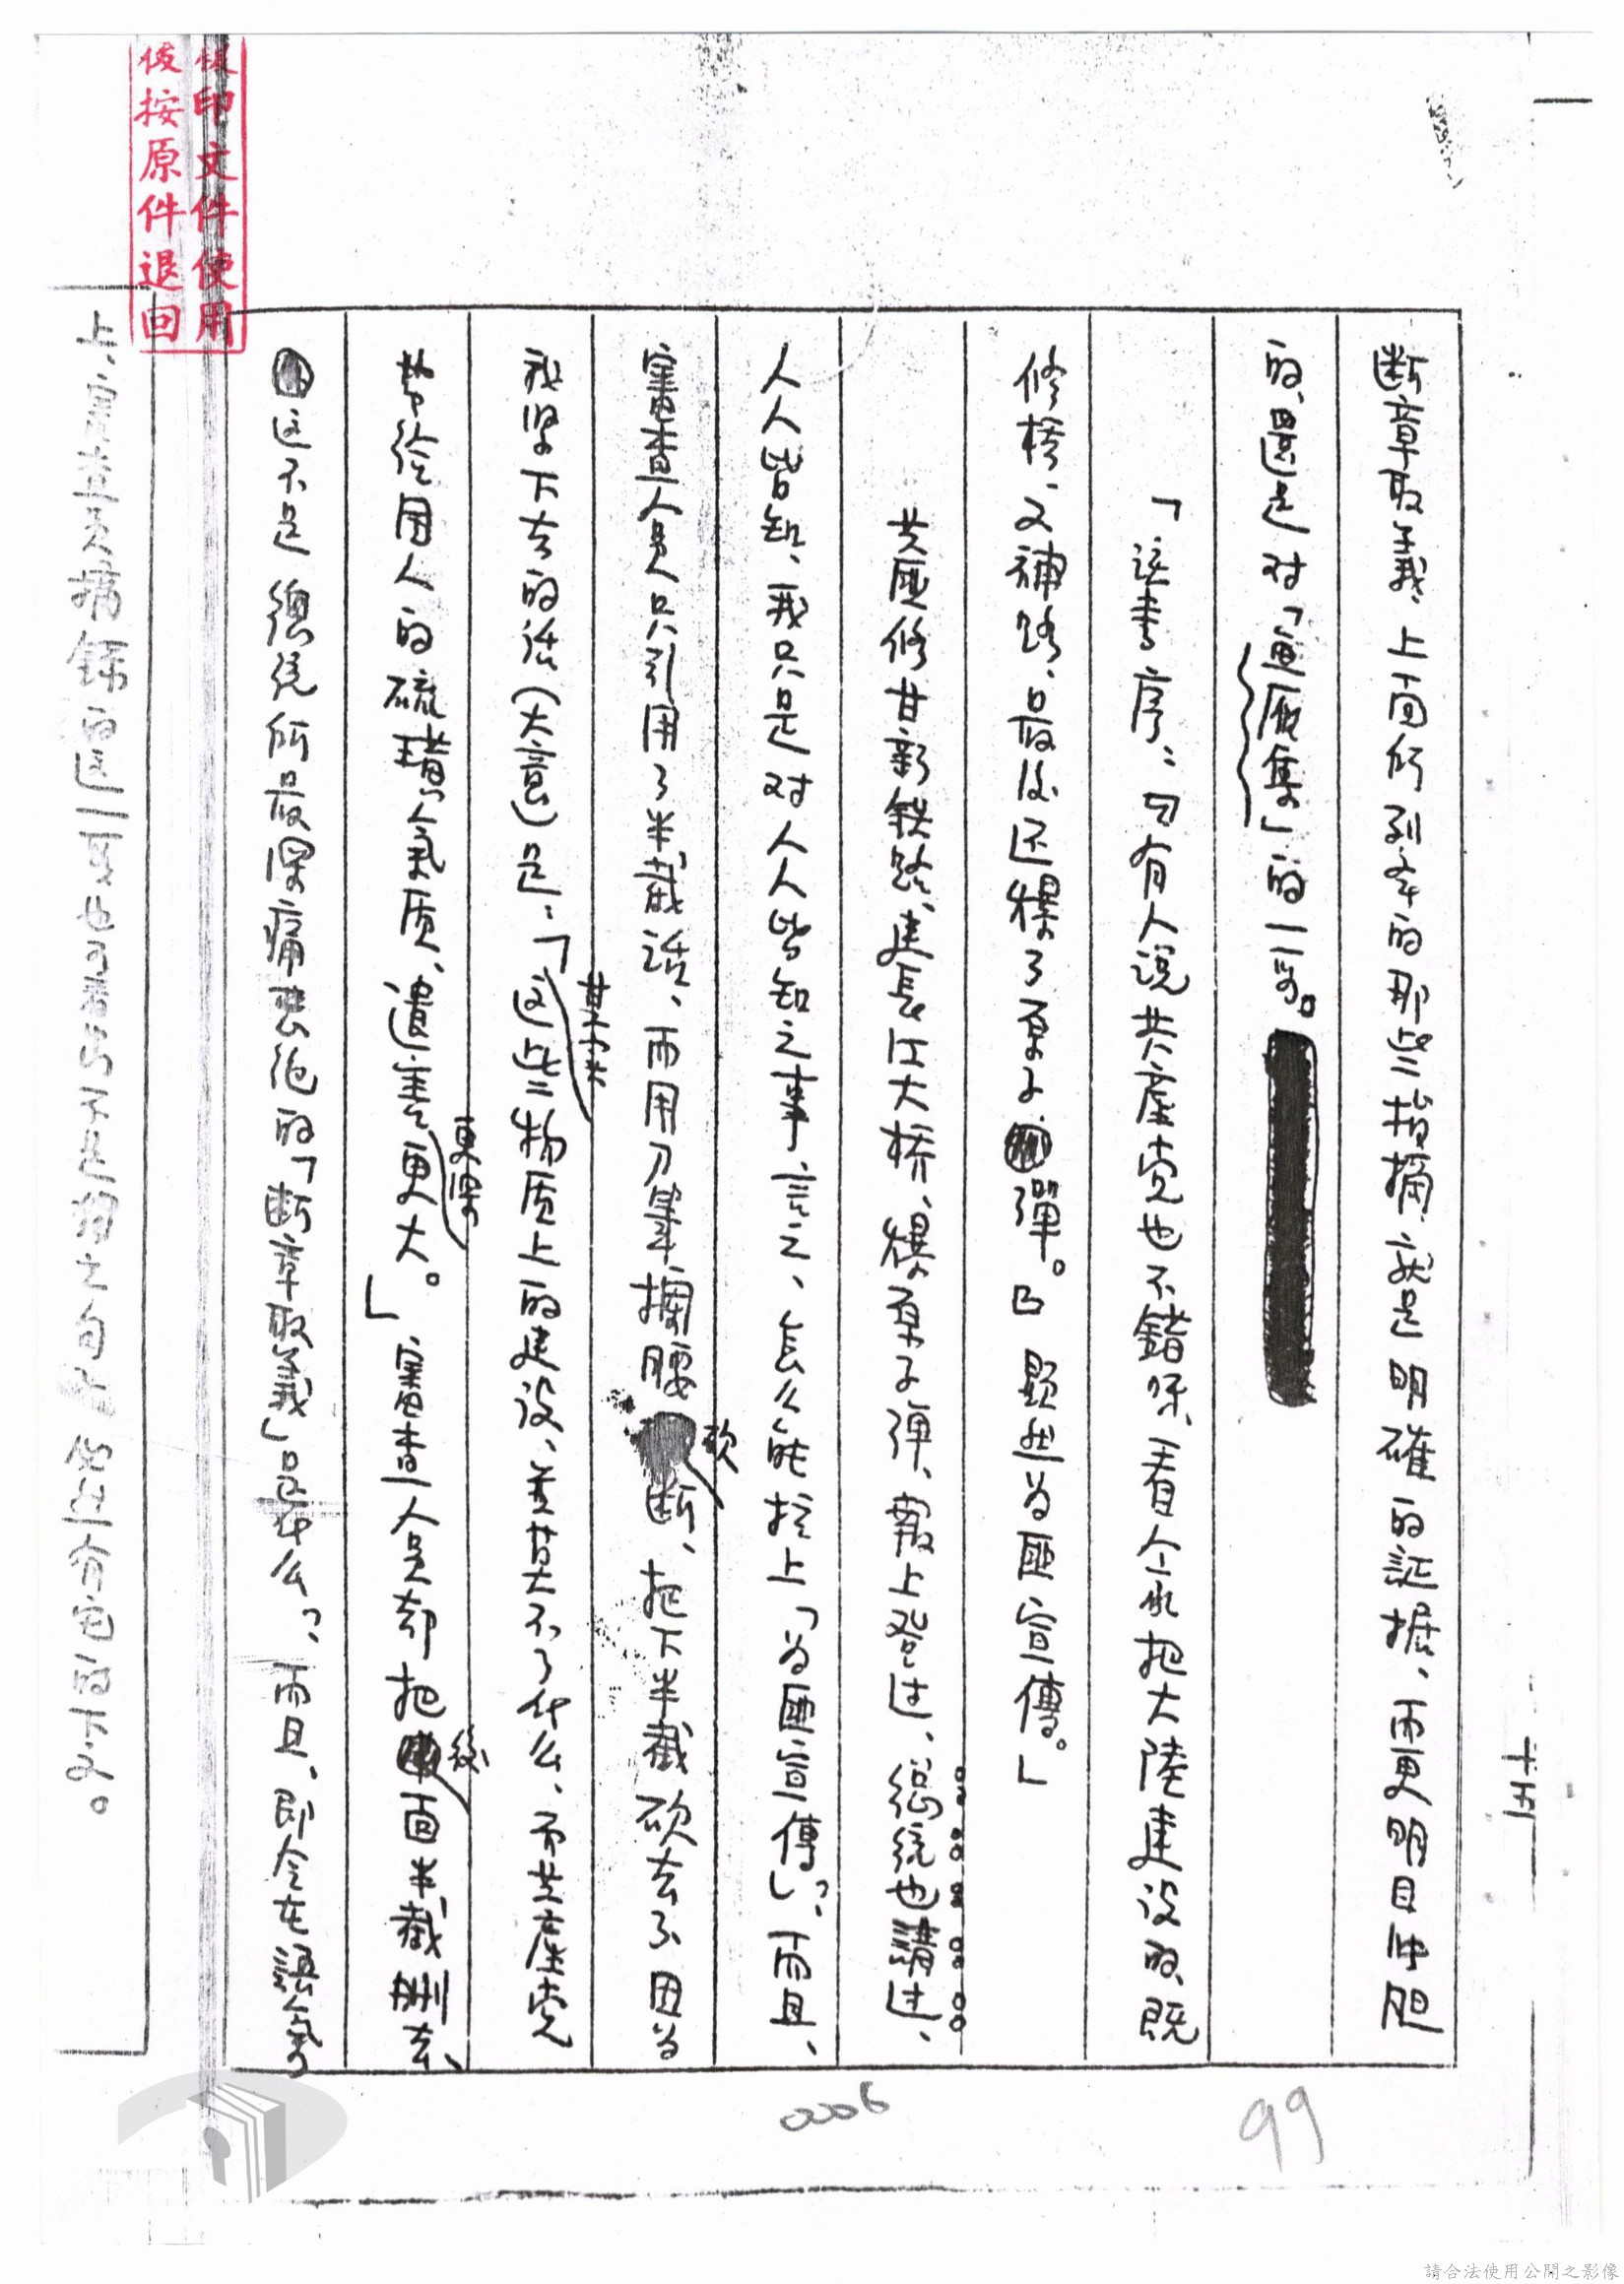 十五
断章取義、上面所列举的那些指摘、就是明確的証据、而更明目张胆
的、還是对「逥廊集」的一段。
「该書序、曰有人说共產党也不錯呀、看人家把大陸建设的、既
修桥、又補路、最後还爆了原子彈。曰顯然為匪宣傳。」
共匪修甘新铁路、建長江大桥、爆原子彈、報上登过、總統也講过、
人人皆知、我只是对人人皆知之事言之、怎么能按上「為匪宣傳」？、而且、
審查人員只引用了半截话、而用刀筆攔腰砍断、把下半截砍去了、因為
我坚下去的话（大意）是：「其实这些物质上的建设、並算不了什么、而共產党
带给国人的硫璜气质、遺害更深更大。」審查人員却把後面半截删去、
这不是總统所最深痛悪绝的「断章取義」是什么？、而且、即令在語氣
上、審查員摘錄的这一段也可看出不是独立句子、必然有它的下文。
復印文件使用
後按原件退回
0006
99
請合法使用公開之影像